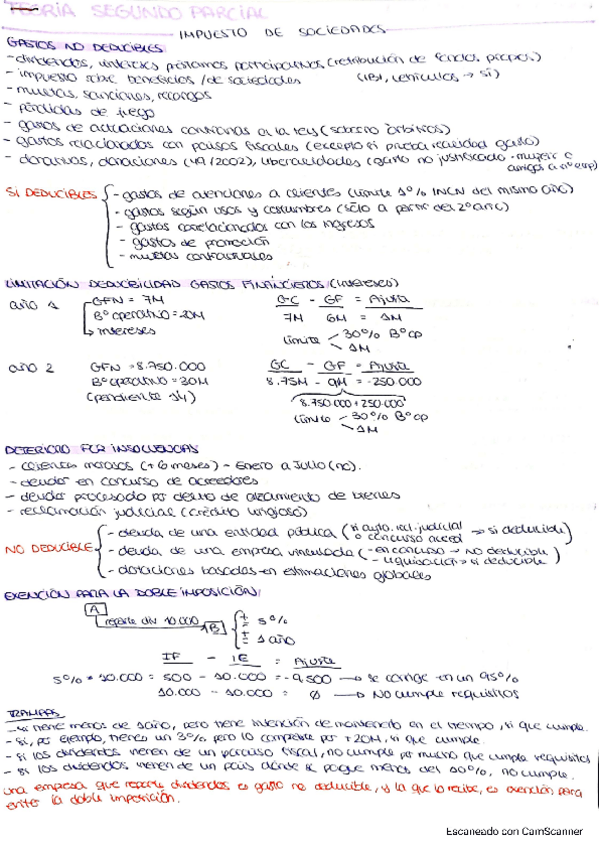 TEORÍA SEGUNDO PARCIAL
IMPUESTO DE SOCIEDADES
GASTOS NO DEDUCIBLES
- dividendos, intereses préstamos participativos (retribución de fondos propios)
- impuesto sobre beneficios / de sociedades (IBI, vehículos → sí)
- multas, sanciones, recargos
- pérdidas de juego
- gastos de actuaciones contrarias a la ley (soborno árbitros)
- gastos relacionados con paísos fiscales (excepto si prueba realidad gasto)
- donativos, donaciones (49/2002), liberalidades (gasto no justificado - mujer o amigos
SI DEDUCIBLES - gastos de atenciones a clientes (límite 1% INCN del mismo año)
- gastos según usos y costumbres (sólo a partir del 2º año)
- gastos correlacionados con los ingresos
- gastos de promoción
- multas contractuales
LIMITACIÓN DEDUCIBILIDAD GASTOS FINANCIEROS (intereses)
año 1 GFN = 7M GC - GF = Ajuste
Bº operativo = 20M 7M 6M = 1M
↳ intereses límite 30% Bº op
1M
año 2 GFN = 8.750.000 GC - GF = Ajuste
Bº operativo = 30M 8.75M - 9M = -250.000
(pendiente 1M) 8.750.000 + 250.000
límite - 30% Bº op
1M
DETERIORO POR INSOLVENCIAS
- clientes morosos (+6 meses) - Enero a Julio (no).
- deudor en concurso de acreedores
- deudor procesado por delito de alzamiento de bienes
- reclamación judicial (crédito litigioso)
NO DEDUCIBLE - deuda de una entidad pública (si auto. rec. judicial o concurso acreed → si deducible)
- deuda de una empresa vinculada (- en concurso → no deducible
- liquidación → si deducible)
- dotaciones basadas en estimaciones globales
EXENCIÓN PARA LA DOBLE IMPOSICIÓN:
A
reparte div 10.000 → B + = 5%
+ = 1 año
IF - IC = Ajuste
5% * 10.000 = 500 - 10.000 = -9.500 → se corrige en un 95%
10.000 - 10.000 = ∅ → No cumple requisitos
TRAMPAS
- si tiene menos de 1 año, pero tiene intención de mantenerlo en el tiempo, si que cumple.
- si, por ejemplo, tienen un 3% pero lo compraste por +20M, si que cumple.
- si los dividendos vienen de un paraíso fiscal, no cumple por mucho que cumpla requisitos
- si los dividendos vienen de un país donde se pague menos del 10%, no cumple.
Una empresa que reparte dividendos es gasto no deducible, y la que lo recibe, es exención para
evitar la doble imposición.
Escaneado con CamScanner